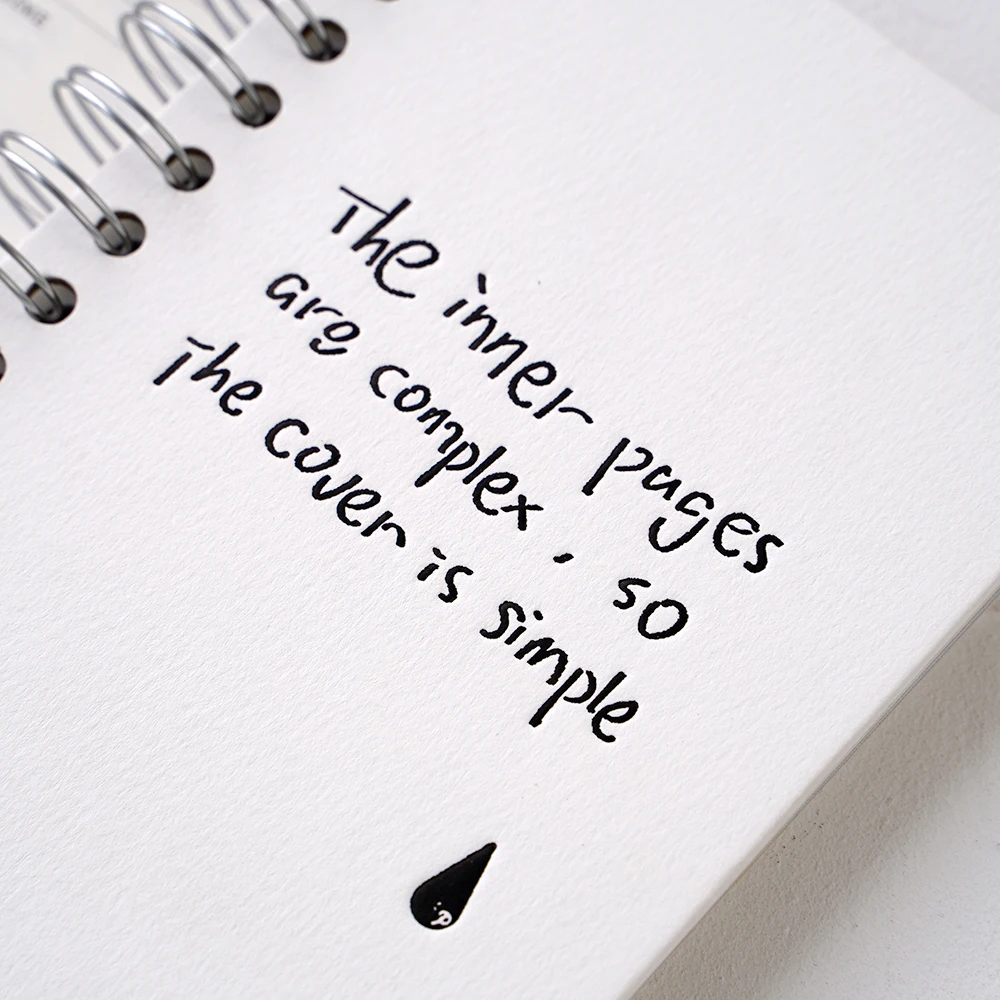 The inner pages
are complex, so
The cover is simple
:P